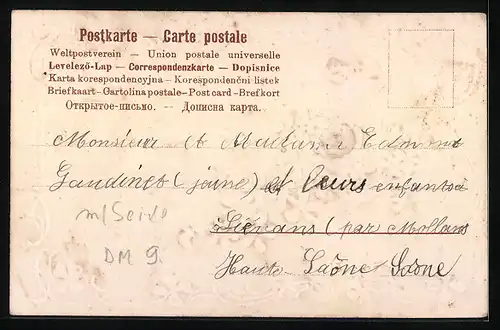 Postkarte — Carte postale
Weltpostverein — Union postale universelle
Levelező-Lap — Correspondenzkarte — Dopisnice
Karta korespondencyjna — Korespondenční lístek
Briefkaart — Cartolina postale — Post card — Brefkort
Открытое-письмо. — Дописна карта.
Monsieur et Madame Edmont
Gaudinet (jeune) et leurs enfants
m/Seide
(par Mollans
DM 9.
Haute-Saône Saône